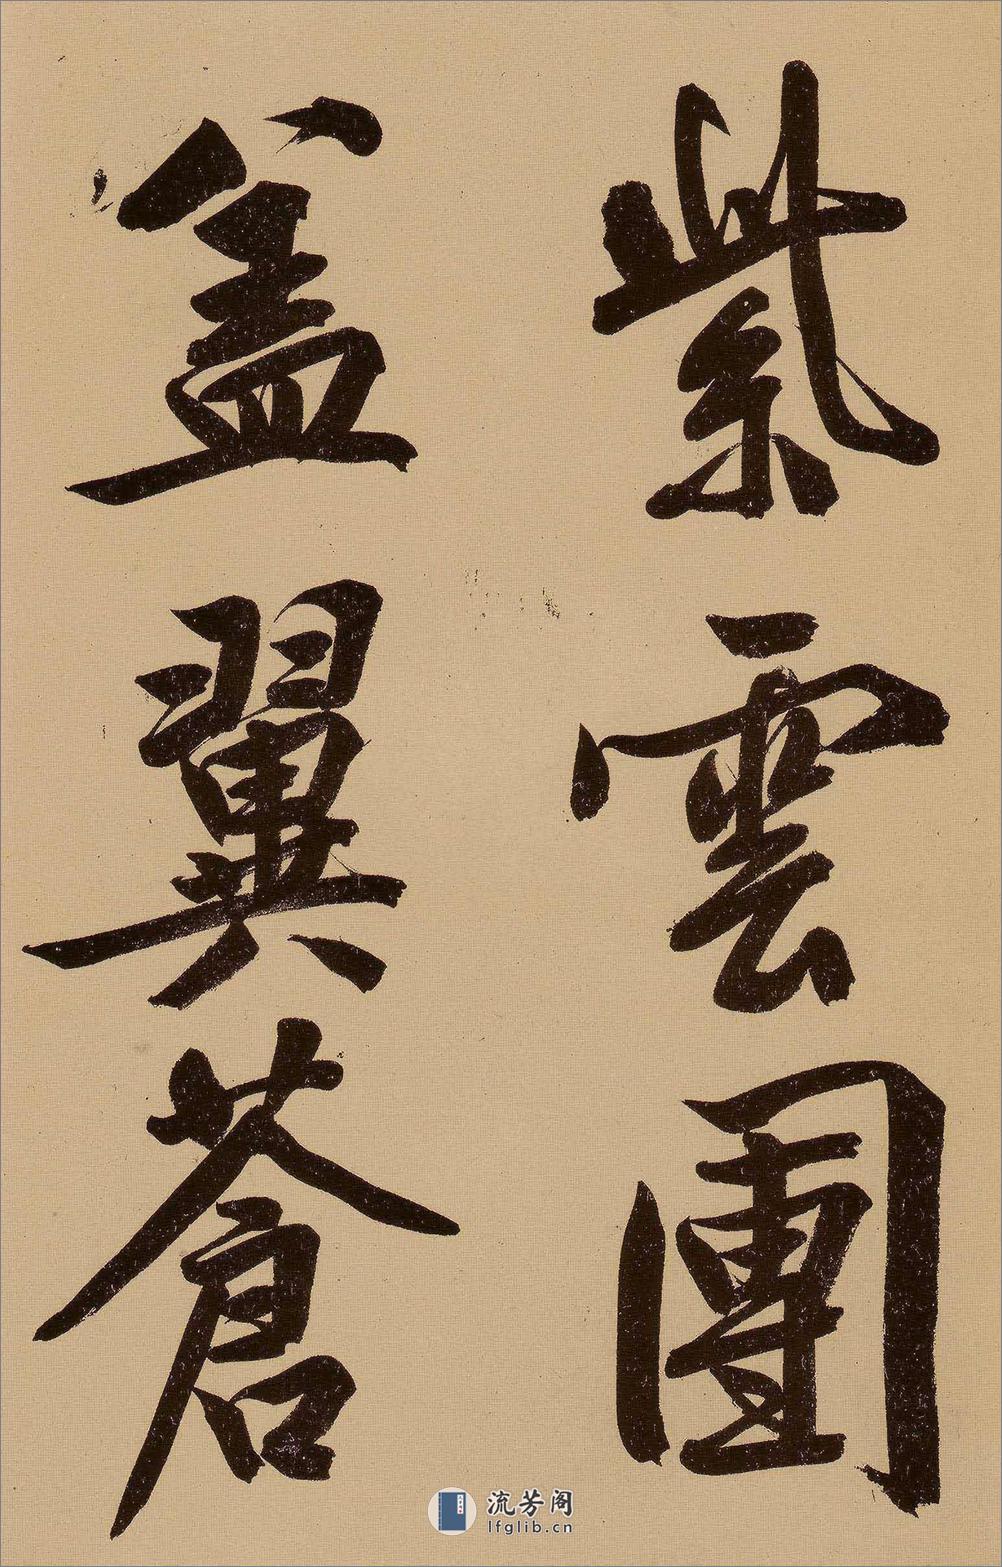 紫雲團
盖翼蒼
流芳阁
lfglib.cn